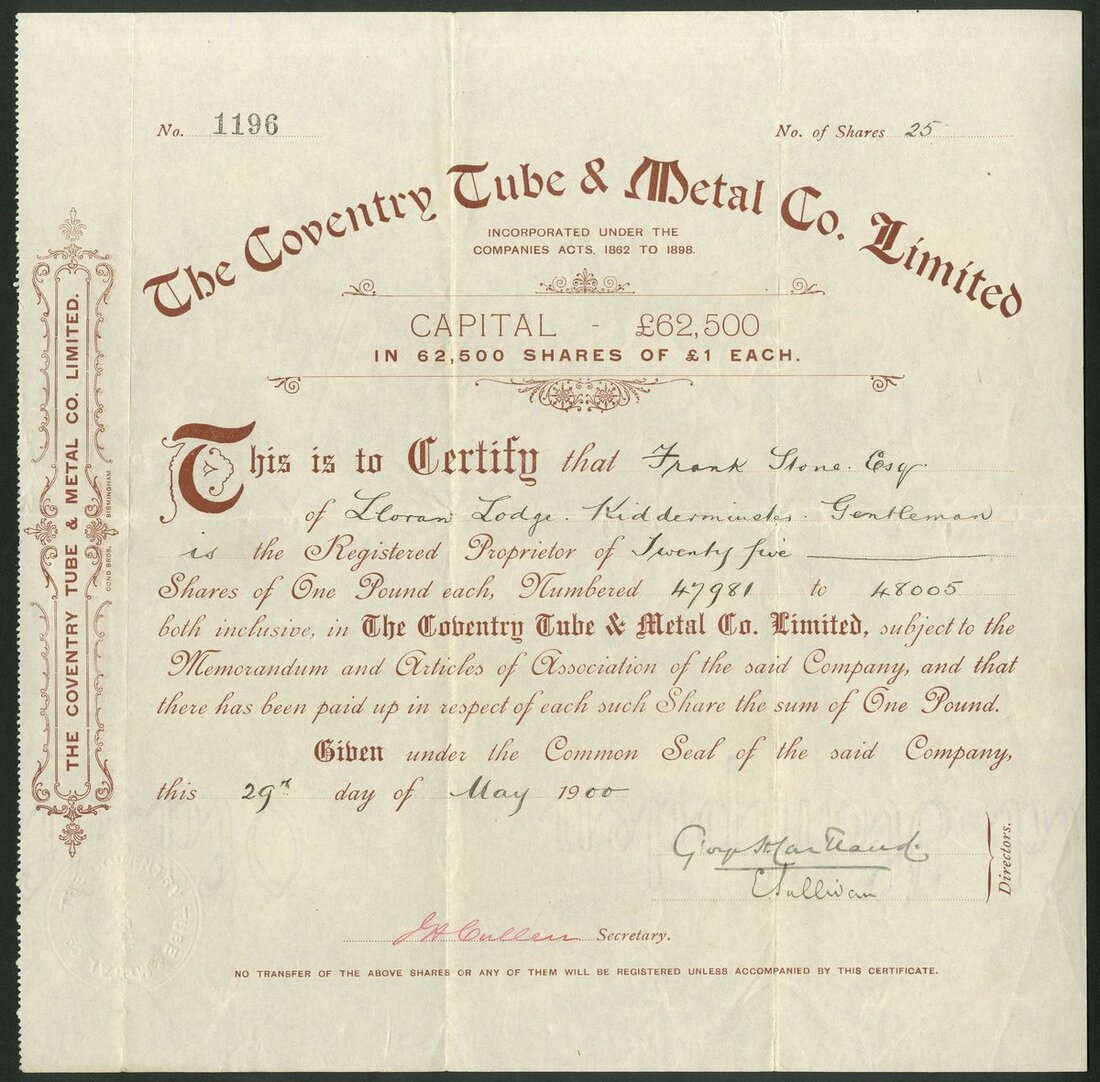 No. 1196
No. of Shares 25
The Coventry Tube & Metal Co. Limited
INCORPORATED UNDER THE
COMPANIES ACTS, 1862 TO 1898.
CAPITAL - £62,500
IN 62,500 SHARES OF £1 EACH.
This is to Certify that Frank Stone Esq
of Lloran Lodge. Kidderminster Gentleman
is the Registered Proprietor of Twenty five
Shares of One Pound each, Numbered 47981 to 48005
both inclusive, in The Coventry Tube & Metal Co. Limited, subject to the
Memorandum and Articles of Association of the said Company, and that
there has been paid up in respect of each such Share the sum of One Pound.
Given under the Common Seal of the said Company,
this 29th day of May 1900
C Sullivan
Directors.
J H Cullen Secretary.
NO TRANSFER OF THE ABOVE SHARES OR ANY OF THEM WILL BE REGISTERED UNLESS ACCOMPANIED BY THIS CERTIFICATE.
THE COVENTRY TUBE & METAL CO. LIMITED.
COND BROS. BIRMINGHAM